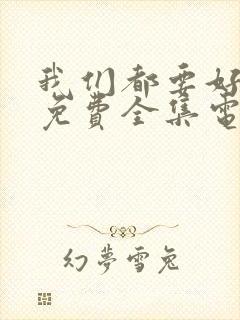 我们都要好
免費全集電
幻夢雪兔